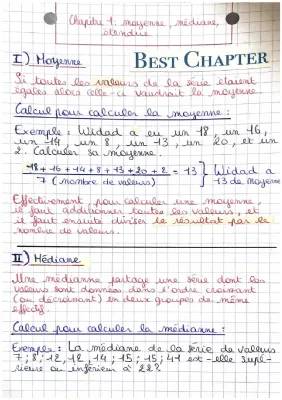 Chapitre 1: moyenne, médiane,
étendue
I) Moyenne
BEST CHAPTER
Si toutes les valeurs de la série étaient
égales alors celle-ci vaudrait la moyenne
Calcul pour calculer la moyenne :
Exemple : Widad a eu un 18, un 16,
un 14, un 8, un 13, un 20, et un
2. Calculer sa moyenne.
18+16+14+8+13+20+2 = 13 } Widad a
7 (nombre de valeurs) 13 de moyenne
Effectivement, pour calculer une moyenne,
il faut additionner toutes les valeurs, et
il faut ensuite diviser le résultat par le
nombre de valeurs.
II) Médiane
Une médianne partage une série dont les
valeurs sont données dans l'ordre croissant
(ou décroissant) en deux groupes de même
effectif.
Calcul pour calculer la médianne :
Exemple : La médiane de la série de valeurs
7 ; 8 ; 12, 12, 14 ; 15 ; 15 ; 41 est-elle supé-
rieure ou inférieur à 22?